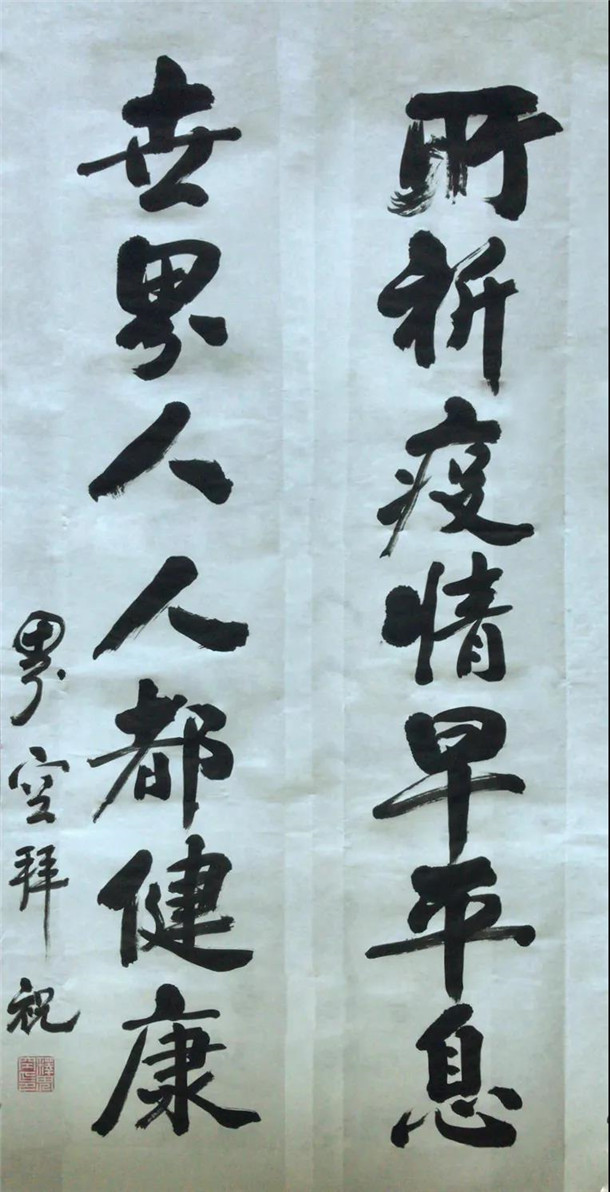 所祈疫情早平息
世界人人都健康
界空拜祝